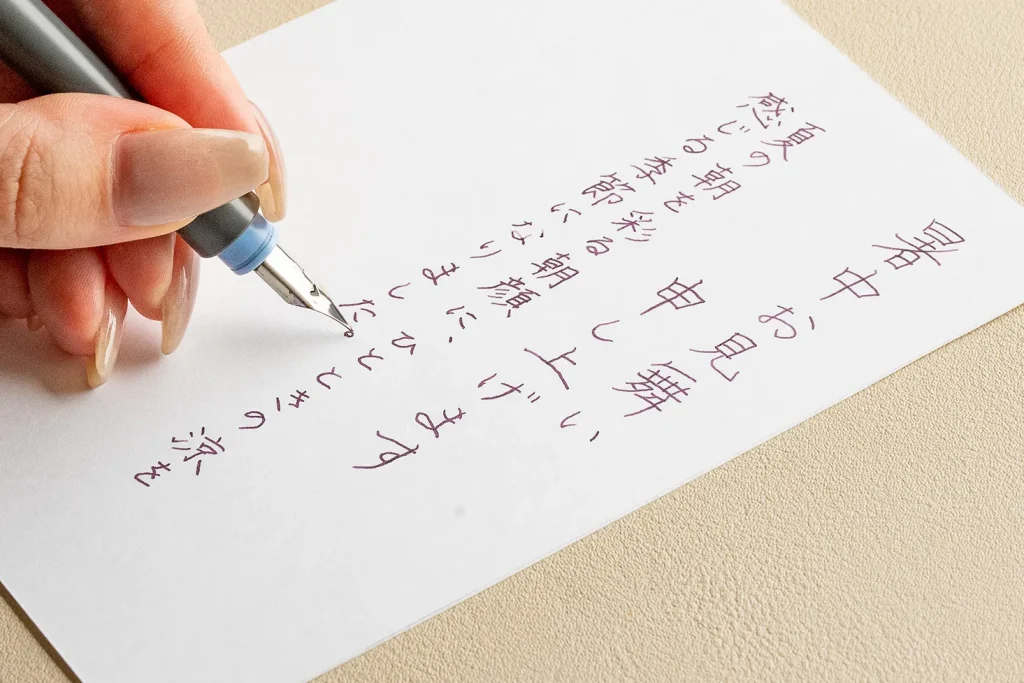 暑中お見舞い
申し上げます
夏の朝を彩る朝顔に、ひとときの涼を
感じる季節になりました。